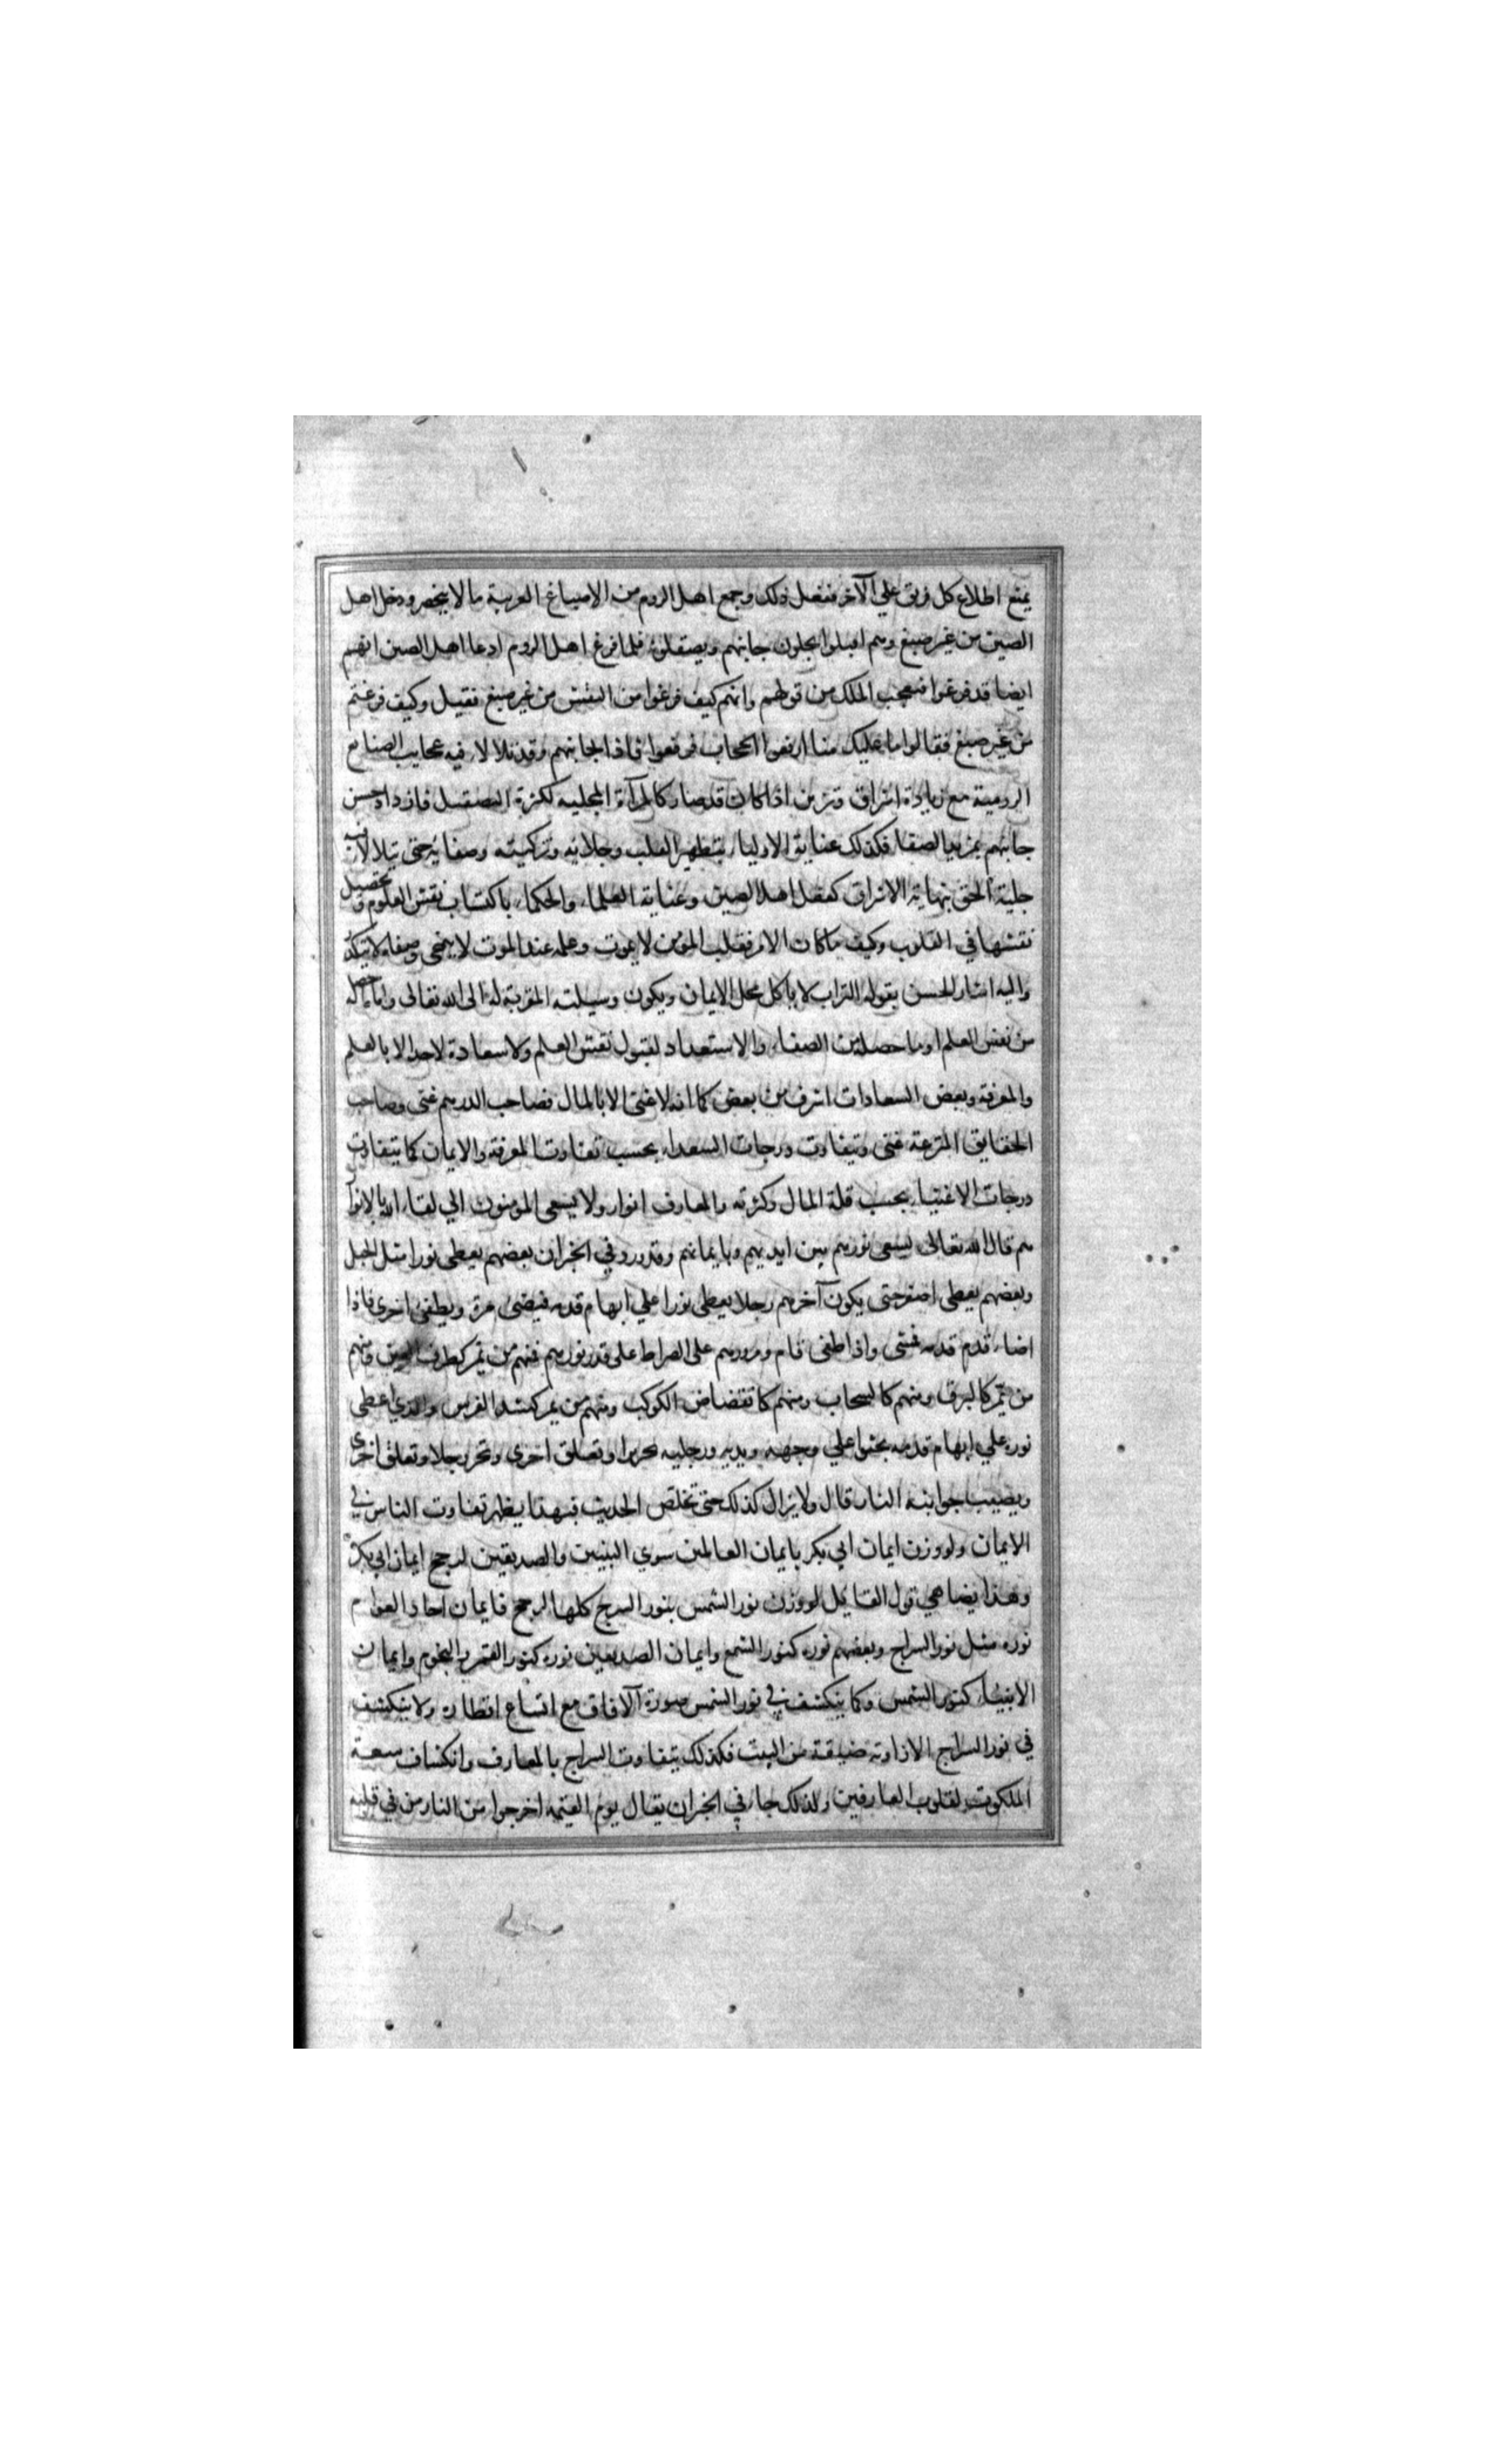 يمنع اطلاع كل فريق علي الآخر ففعل ذلك وجمع اهل الروم من الاصباغ الغريبة ما لا ينحصر ودخل اهل
الصين من غير صبغ وهم اقبلوا يجلون جانبهم ويصقلونه فلما فرغ اهل الروم ادعا اهل الصين انهم
ايضا قد فرغوا فتعجب الملك من قولهم وانهم كيف فرغوا من النقش من غير صبغ فقيل وكيف فرغتم
من غير صبغ فقالوا ما عليك منا ارفعوا الحجاب فرفعوا فاذا بجانبهم وقد تلالا فيه عجايب الصنايع
الرومية مع زيادة اشراق وتزين اذا كان قد صار كالمرآة المجلية لكثرة التصقيل فازداد حسن
جانبهم بمزيد الصفا فكذلك عناية الاوليا بتطهير القلب وجلائه وتزكيته وصفائه حتي تلالا فيه
جلية الحق بنهاية الاشراق كفعل اهل الصين وعناية العلماء والحكماء باكتساب نقش العلوم وتحصيل
نقشها في القلوب وكيف ماكان الامر فقلب المؤمن لا يموت وعلمه عند الموت لا يمحى وصفاه لا يتكدر
واليه اشار الحسن بقوله التراب لا ياكل محل الايمان ويكون وسيلته المقربة له الى الله تعالى واما ما حصله
من نفس العلم او ما حصله من الصفاء والاستعداد لقبول نقش العلم ولا سعادة لاحد الا بالعلم
والمعرفة وبعض السعادات اشرف من بعض كما انه لا غنى الا بالمال فصاحب الدرهم غنى وصاحب
الحقايق المترعة غنى وتتفاوت درجات السعداء بحسب تفاوت المعرفة والايمان كما يتفاوت
درجات الاغنياء بحسب قلة المال وكثرته والمعارف انوار ولا يسعى المؤمنون الي لقاء الله الا بانوار
هم قال الله تعالى يسعى نورهم بين ايديهم وبايمانهم وقد ورد في الخبر ان بعضهم يعطى نورا مثل الجبل
وبعضهم يعطى اصغر حتى يكون آخرهم رجلا يعطى نورا علي ابهام قدمه فيضئ مرة ويطفئ اخرى فاذا
اضاء قدم قدمه فمشى واذا طفى قام ومرورهم على الصراط على قدر نورهم فمنهم من يمر كطرف العين ومنهم
من يمر كالبرق ومنهم كالسحاب ومنهم كانقضاض الكوكب ومنهم من يمر كشد الفرس والذي اعطى
نوره علي ابهام قدمه يحبوا علي وجهه ويديه ورجليه يجر يدا وتعلق اخرى وتجر رجلا وتعلق اخرى
ويصيب جوانبه النار قال ولا يزال كذلك حتى تخلص الحديث فبهذا يظهر تفاوت الناس في
الايمان ولو وزن ايمان ابي بكر بايمان العالمين سوي النبيين والصديقين لرجح ايمان ابي بكر
وهذا يضاهي قول القايل لو وزن نور الشمس بنور السرج كلها لرجح فايمان احاد العوام
نوره مثل نور السراج وبعضهم نوره كنور الشمع وايمان الصديقين نوره كنور القمر والنجوم وايمان
الانبياء كنور الشمس وكما ينكشف في نور الشمس صورة الآفاق مع اتساع اقطاره ولا ينكشف
في نور السراج الا زاوية ضيقة من البيت فكذلك يتفاوت السراج بالمعارف وانكشاف سعة
الملكوت لقلوب العارفين ولذلك جاء في الخبر ان يقال يوم القيمة اخرجوا من النار من في قلبه